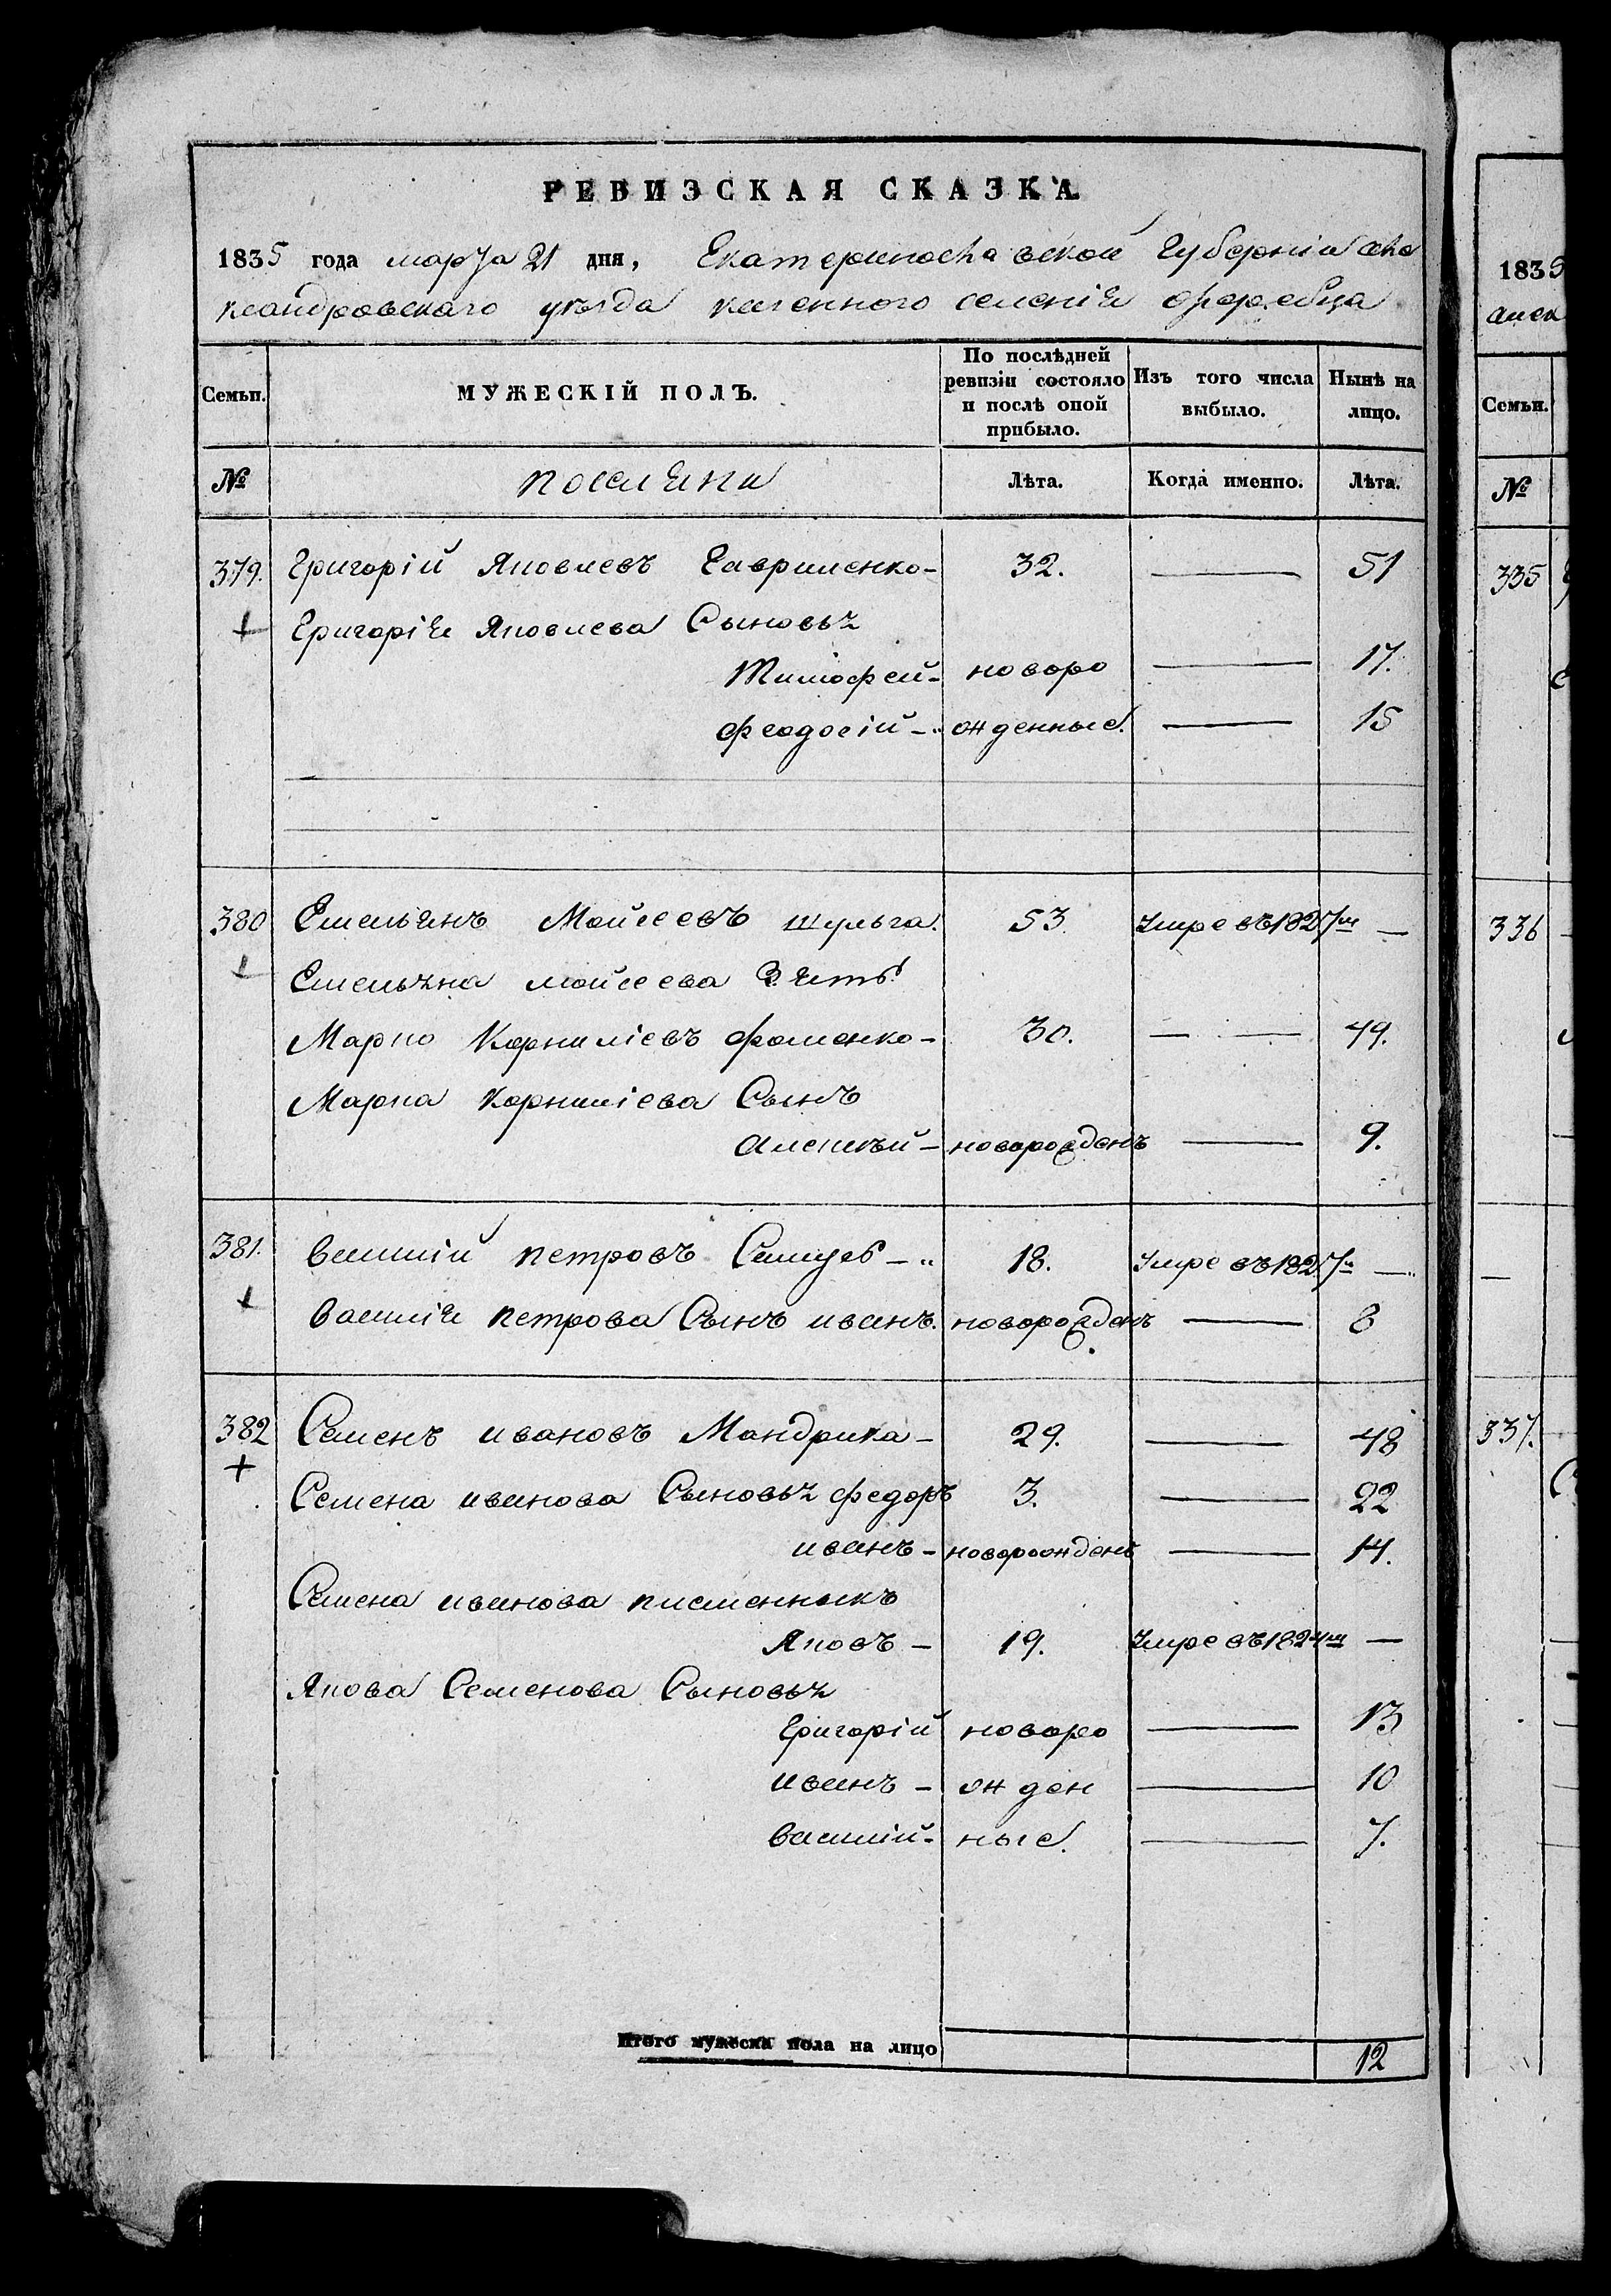 РЕВИЗСКАЯ СКАЗКА
1835 года марта 21 дня, Екатеринославской Губерніи Але
ксандровскаго уѣзда казенного селенія
Семьи. МУЖЕСКІЙ ПОЛЪ. По послѣдней ревизіи состояло и послѣ оной прибыло. Изъ того числа выбыло. Нынѣ на лицо.
№ поселяни Лѣта. Когда именно. Лѣта.
379. Григорій Яковлевъ Гавриленко - 32. — 51
+ Григорія Яковлева Сыновья
Тимофей - новоро — 17.
Феодосій - жденные. — 15
380 Емельянъ Мойсеевъ Шульга. 53. Умре въ 1827м —
+ Емельяна Мойсеева Зять
Марко Корниліевъ Фоменко - 30. — 49.
Марка Корниліева Сынъ
Алексѣй - новорожденъ — 9.
381. Василій Петровъ 18. Умре въ 1827м —
+ Василія Петрова Сынъ Иванъ. новорожденъ — 8
382 Семенъ Ивановъ Мандрика - 29. — 48
+ Семена Иванова Сыновья Федоръ 3. — 22
Иванъ - новорожденъ — 14.
Семена Иванова
Яковъ - 19. Умре въ 1824м —
Якова Семенова Сыновья
Григорій новоро — 13
Иванъ - жден — 10
Василій - ные. — 7.
Итого мужеска пола на лицо 12
1835
Семьи.
№
335
336
337.